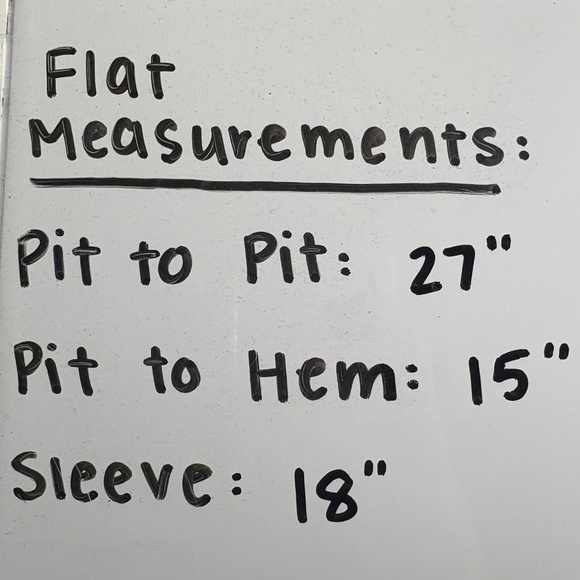 Flat
Measurements:
Pit to Pit: 27"
Pit to Hem: 15"
Sleeve: 18"